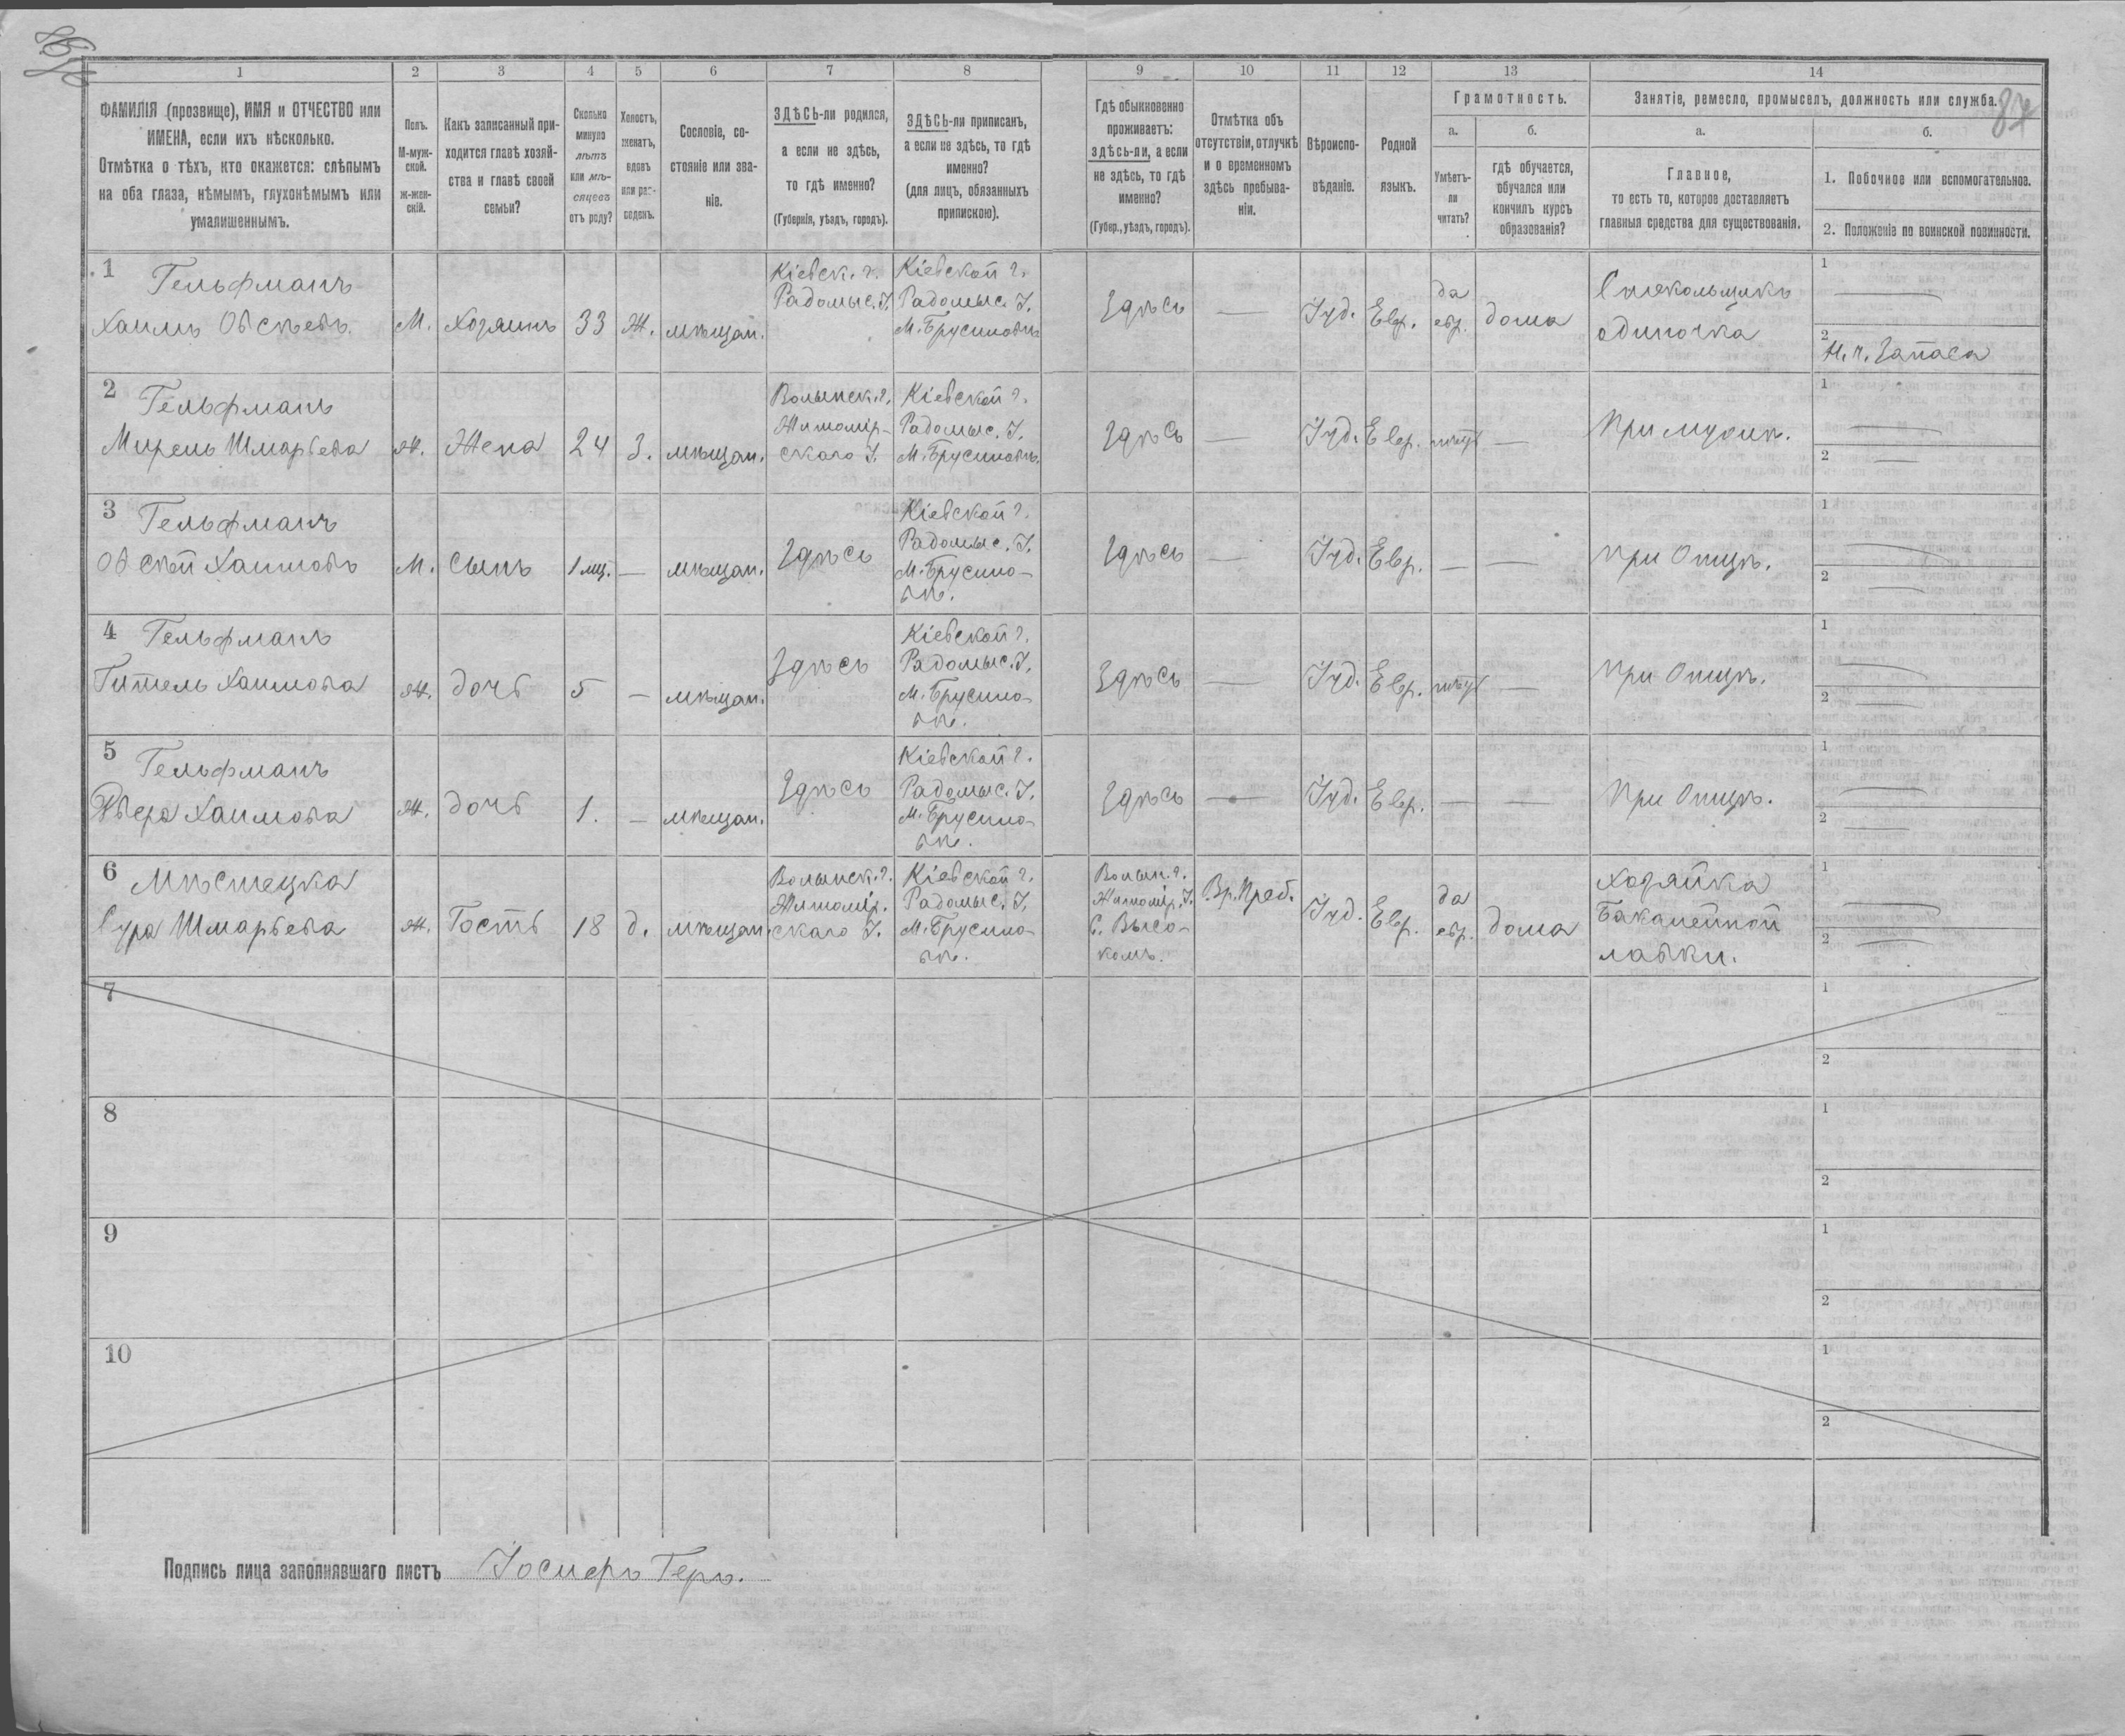 87
1 2 3 4 5 6 7 8 9 10 11 12 13 14
ФАМИЛІЯ (прозвище), ИМЯ и ОТЧЕСТВО или
ИМЕНА, если ихъ нѣсколько.
Отмѣтка о тѣхъ, кто окажется: слѣпымъ
на оба глаза, нѣмымъ, глухонѣмымъ или
умалишеннымъ.
Полъ.
М-муж-
ской.
ж-жен-
скій.
Какъ записанный при-
ходится главѣ хозяй-
ства и главѣ своей
семьи?
Сколько
минуло
лѣтъ
или мѣ-
сяцевъ
отъ роду?
Холостъ,
женатъ,
вдовъ
или раз-
веденъ.
Сословіе, со-
стояніе или зва-
ніе.
ЗДѢСЬ-ли родился,
а если не здѣсь,
то гдѣ именно?
(Губернія, уѣздъ, городъ).
ЗДѢСЬ-ли приписанъ,
а если не здѣсь, то гдѣ
именно?
(для лицъ, обязанныхъ
припискою).
Гдѣ обыкновенно
проживаетъ:
здѣсь-ли, а если
не здѣсь, то гдѣ
именно?
(Губер., уѣздъ, городъ).
Отмѣтка объ
отсутствіи, отлучкѣ
и о временномъ
здѣсь пребыва-
ніи.
Вѣроиспо-
вѣданіе.
Родной
языкъ.
Грамотность.
а.
Умѣетъ-
ли
читать?
б.
гдѣ обучается,
обучался или
кончилъ курсъ
образованія?
Занятіе, ремесло, промыселъ, должность или служба.
а.
Главное,
то есть то, которое доставляетъ
главныя средства для существованія.
б.
1. Побочное или вспомогательное.
2. Положеніе по воинской повинности.
1
Гельфманъ
Хаимъ Овсѣевъ.
М.
Хозяинъ
33
Ж.
мѣщан.
Кіевск. г.
Радомыс. У.
Кіевской г.
Радомыс. У.
М. Брусиловѣ
Здѣсь
—
Іуд.
Евр.
да
евр.
дома
Стекольщикъ
одиночка
1
—
2
Н. ч. Запаса
2
Гельфманъ
Мирель Шмарьева
Ж.
Жена
24
З.
мѣщан.
Волынск. г.
Житомір-
скаго У.
Кіевской г.
Радомыс. У.
М. Брусиловѣ.
Здѣсь
—
Іуд.
Евр.
нѣтъ
—
При мужѣ.
1
2
—
3
Гельфманъ
Овсѣй Хаимовъ
М.
Сынъ
1 мц.
—
мѣщан.
Здѣсь
Кіевской г.
Радомыс. У.
М. Брусило-
вѣ.
Здѣсь
—
Іуд.
Евр.
—
—
При Отцѣ.
1
—
2
—
4
Гельфманъ
Гитель Хаимова
Ж.
дочь
5
—
мѣщан.
Здѣсь
Кіевской г.
Радомыс. У.
М. Брусило-
вѣ.
Здѣсь
—
Іуд.
Евр.
нѣтъ
—
При Отцѣ.
1
—
2
—
5
Гельфманъ
Хаимова
Ж.
дочь
1.
—
мѣщан.
Здѣсь
Кіевской г.
Радомыс. У.
М. Брусило-
вѣ.
Здѣсь
—
Іуд.
Евр.
—
—
При Отцѣ.
1
—
2
—
6
Мѣстецка
Сура Шмарьева
Ж.
Гость
18
д.
мѣщан.
Волынск. г.
Житомір.
скаго У.
Кіевской г.
Радомыс. У.
М. Брусило-
вѣ.
Волын. г.
Житомір. У.
С. Высо-
комъ.
Вр. Преб.
Іуд.
Евр.
да
евр.
дома
Хозяйка
Бакалейной
лавки.
1
—
2
—
7
1
2
8
1
2
9
1
2
10
1
2
Подпись лица заполнявшаго листъ Іосифъ Геръ.